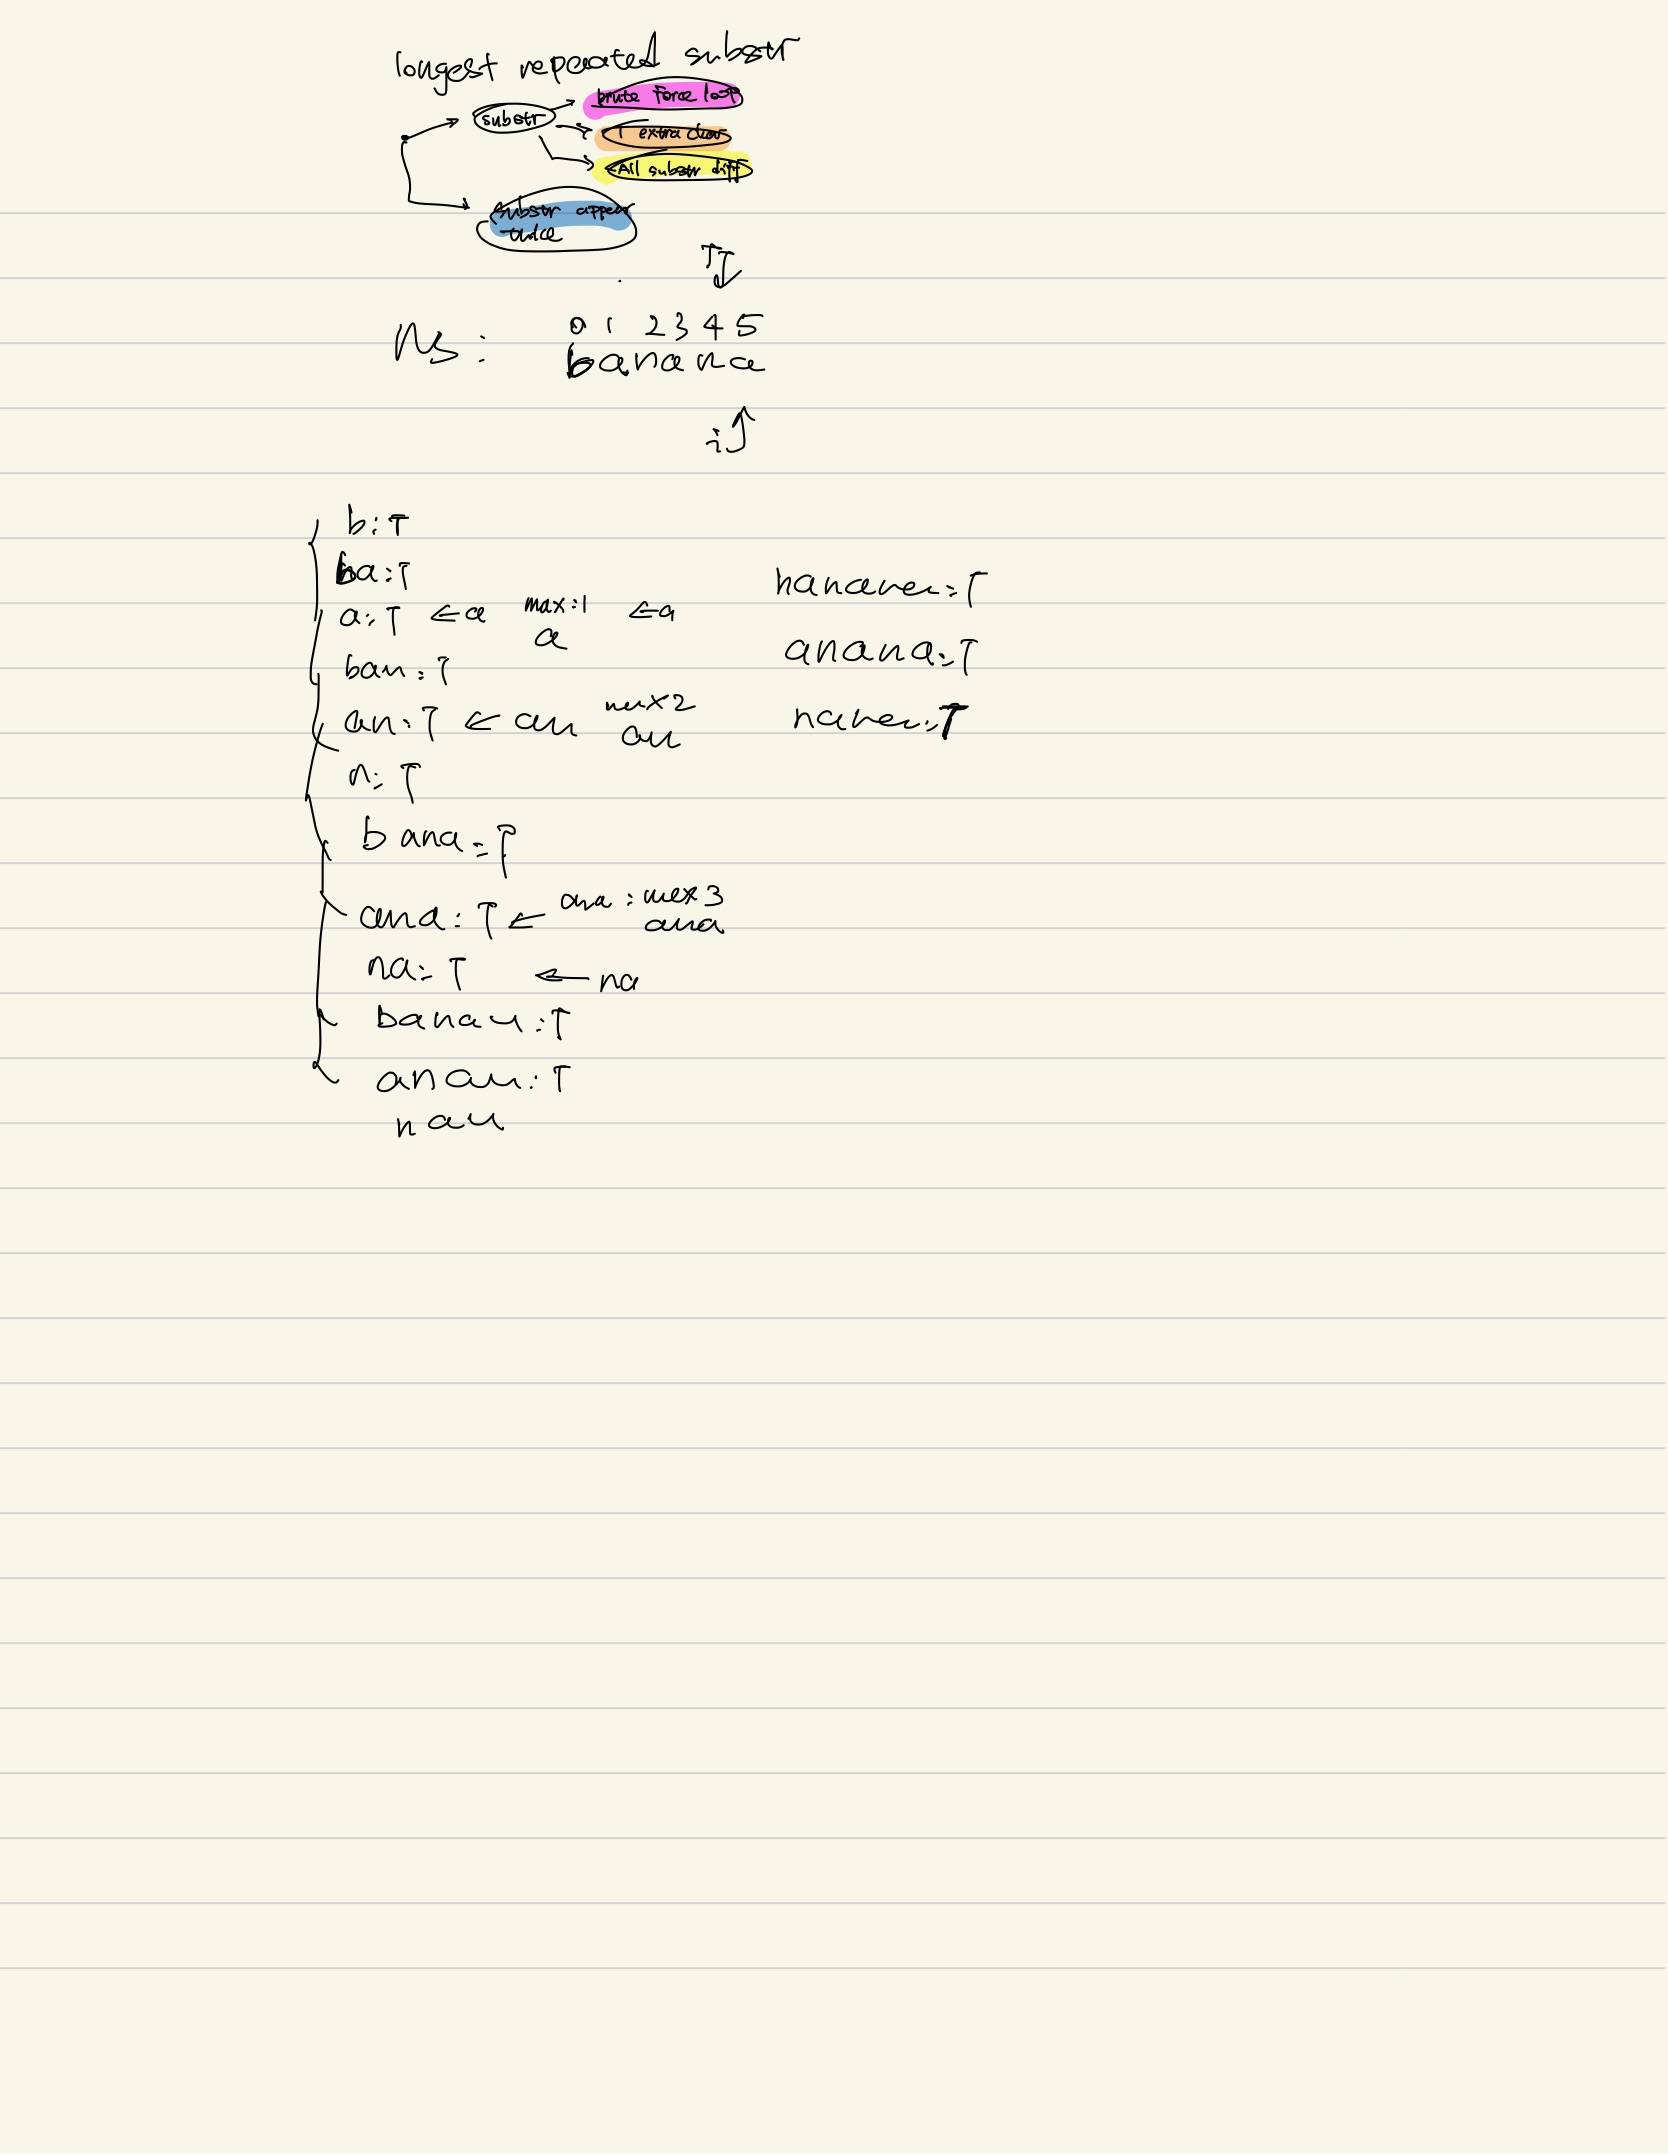 longest repeated substr
brute force loop
substr
1 extra char
All substr diff
substr appear
twice
0 1 2 3 4 5
banana
i
b: T
ba: T
a: T ← a max: 1 ← a
a
ban: T
an: T ← an max 2
an
n: T
bana: T
ana: T ← ana: max 3
ana
na: T ← na
banan: T
anan: T
nan
banana: T
anana: T
nana: T